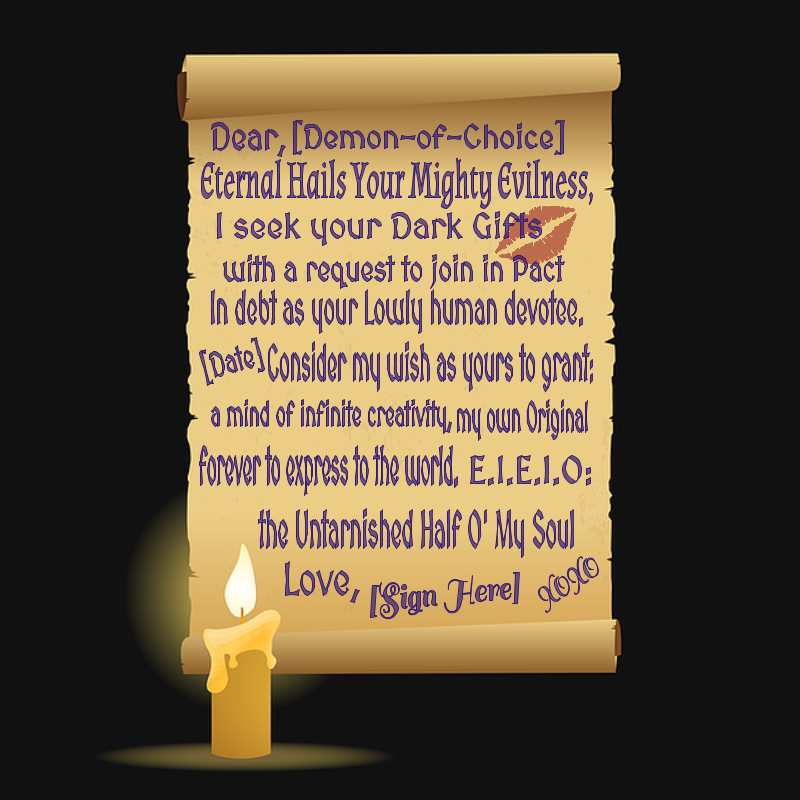 Dear, [Demon-of-Choice]
Eternal Hails Your Mighty Evilness,
I seek your Dark Gifts
with a request to join in Pact
In debt as your Lowly human devotee.
[Date] Consider my wish as yours to grant:
a mind of infinite creativity, my own Original
forever to express to the world. E.I.E.I.O:
the Untarnished Half O' My Soul
Love, [Sign Here] XOXO